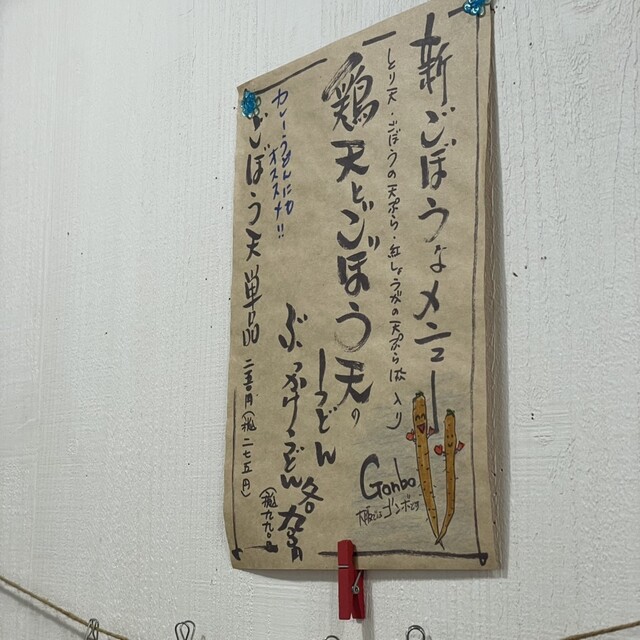 新ごぼうなメニュー
とり天・ごぼうの天ぷら・紅しょうがの天ぷらが入り
鶏天とごぼう天の
うどん
ぶっかけうどん 各九百円
(税込九九〇円)
カレーうどんにも
オススメ!!
ごぼう天単品 二五〇円(税込二七五円)
Gonbo
大阪では ゴンボです